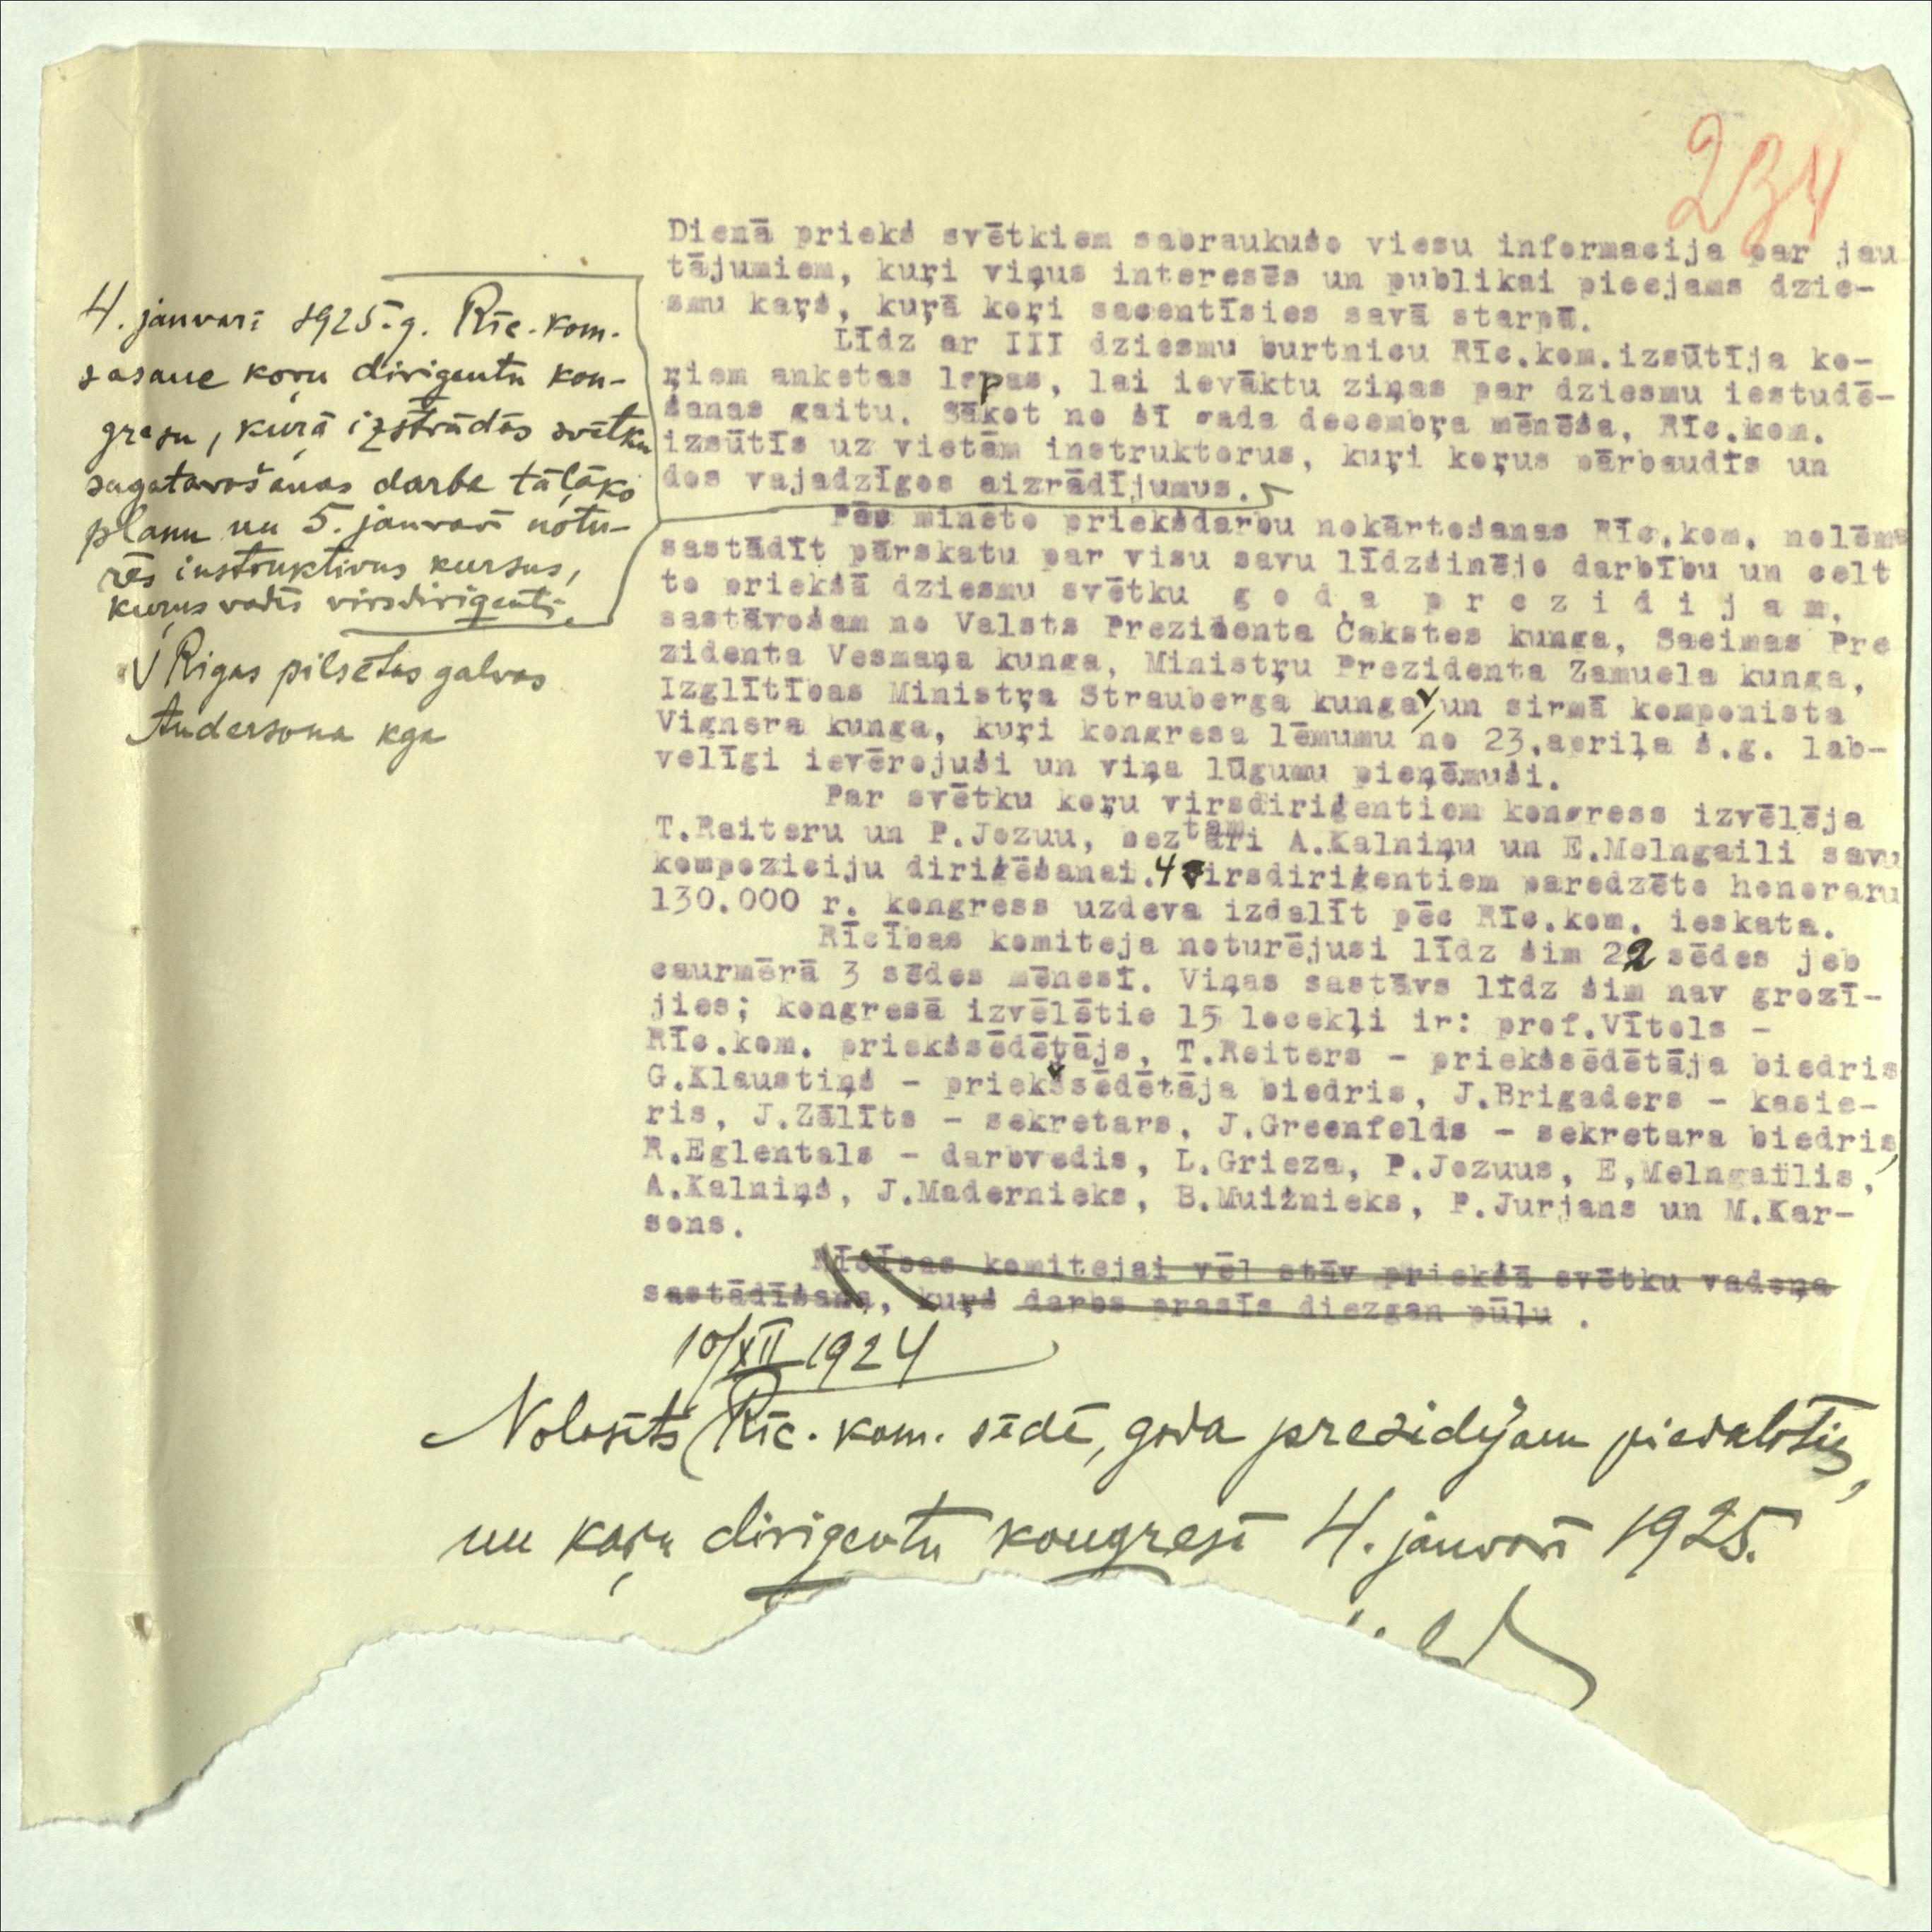 234
Dienā priekš svētkiem sabraukušo viesu informacija par jau
tājumiem, kuŗi viņus interesēs un publikai pieejams dzie-
smu kaŗš, kuŗā koŗi sacentīsies savā starpā.
Līdz ar III dziesmu burtnicu Rīc.kom.izsūtīja ko-
ŗiem anketas lapas, lai ievāktu ziņas par dziesmu iestudē-
šanas gaitu. Sākot no šī gada decembŗa mēnēša, Rīc.kom.
izsūtīs uz vietām instruktorus, kuŗi koŗus pārbaudīs un
dos vajadzīgos aizrādījumus.
4. janvarī 1925.g. Rīc.kom.
sasauc koŗu dirigentu kon-
gresu, kurā izstrādās svētku
sagatavošanas darba tāļāko
planu un 5. janvarī notu-
rēs instruktivus kursus,
kuŗus vadīs virsdirigenti.
Pēc minēto priekšdarbu nokārtošanas Rīc.kom. nolēma
sastādīt pārskatu par visu savu līdzšinējo darbību un celt
to priekšā dziesmu svētku g o d a p r e z i d i j a m,
sastāvošam no Valsts Prezidenta Čakstes kunga, Saeimas Pre
zidenta Vesmaņa kunga, Ministŗu Prezidenta Zamuela kunga,
Izglītības Ministŗa Strauberga kunga √, un sirmā komponista
√ Rigas pilsētas galvas
Andersona kga
Vignera kunga, kuŗi kongresa lēmumu no 23.apriļa š.g. lab-
velīgi ievērojuši un viņa lūgumu pieņēmuši.
Par svētku koŗu virsdiriģentiem kongress izvēlēja
T.Reiteru un P.Jozuu, beztam arī A.Kalniņu un E.Melngaili savu
kompoziciju diriģēšanai. 4 virsdiriģentiem paredzēto honoraru
130.000 r. kongress uzdeva izdalīt pēc Rīc.kom. ieskata.
Rīcības komiteja noturējusi līdz šim 22 sēdes jeb
caurmērā 3 sēdes mēnesī. Viņas sastāvs līdz šim nav grozī-
jies; kongresā izvēlētie 15 locekļi ir: prof.Vītols -
Rīc.kom. priekšsēdētājs, T.Reiters - priekšsēdētāja biedris
G.Klaustiņš - priekšsēdētāja biedris, J.Brigaders - kasie-
ris, J.Zālīts - sekretars, J.Greenfelds - sekretara biedris,
R.Eglentals - darbvedis, L.Grieza, P.Jozuus, E,Melngailis,
A.Kalniņš, J.Madernieks, B.Muižnieks, P.Jurjans un M.Kar-
sons.
Rīcības komitejai vēl stāv priekšā svētku vadoņa
sastādīšana, kuŗš darbs prasīs diezgan pūļu .
10/XII 1924
Nolasīts Rīc. kom. sēdē, goda prezidijam piedaloties,
un koŗu dirigentu kongresā 4. janvarī 1925.